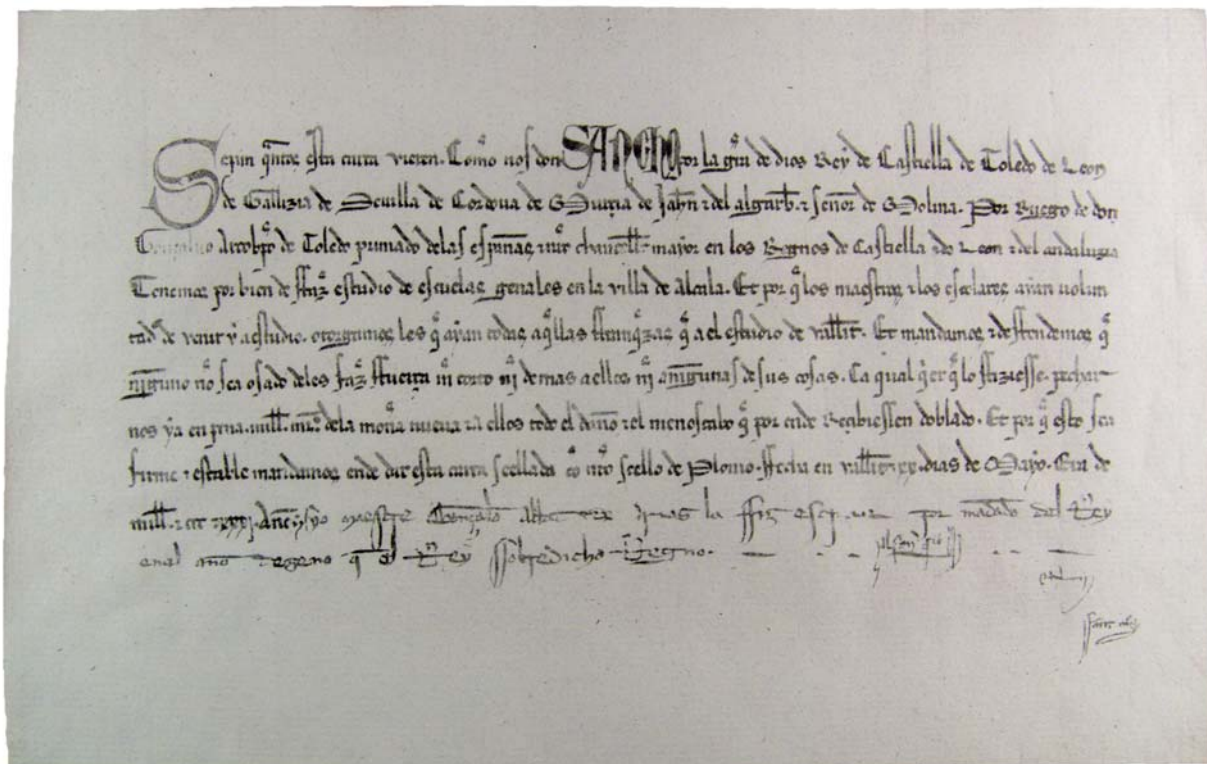 Sepan qntos esta carta vieren. Como nos don SANCHO por la gra de dios Rey de Castiella de Toledo de Leon
de Gallizia de Sevilla de Cordova de Murçia de Jahen ⁊ del algarb. ⁊ señor de Molina. Por Ruego de don
Gonçaluo Arcobpo de Toledo primado delas españas ⁊ nro chancell mayor en los Regnos de Castiella ⁊ de Leon ⁊ del andaluzia
Tenemos por bien de ffaz estudio de escuelas genales en la villa de Alcala. Et por q los maestros ⁊ los escolares ayan uolun
tad de venir y a estudio. otorgamos les q ayan todas aqllas ffranqzas q a el estudio de vallit. Et mandamos ⁊ deffendemos q
ninguno no sea osado deles faz ffuerça ni torto ni demas a ellos ni a ningunas de sus cosas. Ca qual qer q lo fiziesse. pechar
nos ya en pena. mill. mr. dela mona nueua ⁊ a ellos todo el dano ⁊ el menoscabo q por ende Reçibiessen doblado. Et por q esto sea
firme ⁊ estable mandamos ende dar esta carta seellada co nro seello de Plomo. ffecha en vallit. xx. dias de Mayo. Era de
mill. ⁊ ccc ⁊ xxxi. Annos yo maestre Gonçalo la ffiz escriuir por madado del Rey
enel año el Rey ssobredicho Regno.